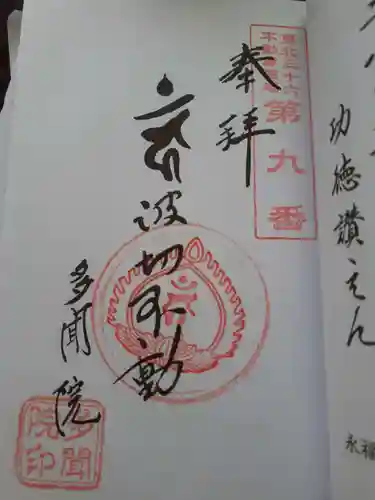 奉拝
東北三十六
不動尊霊場
第九番
波切不動
多聞院
多聞
院印
功徳讃えん
永福